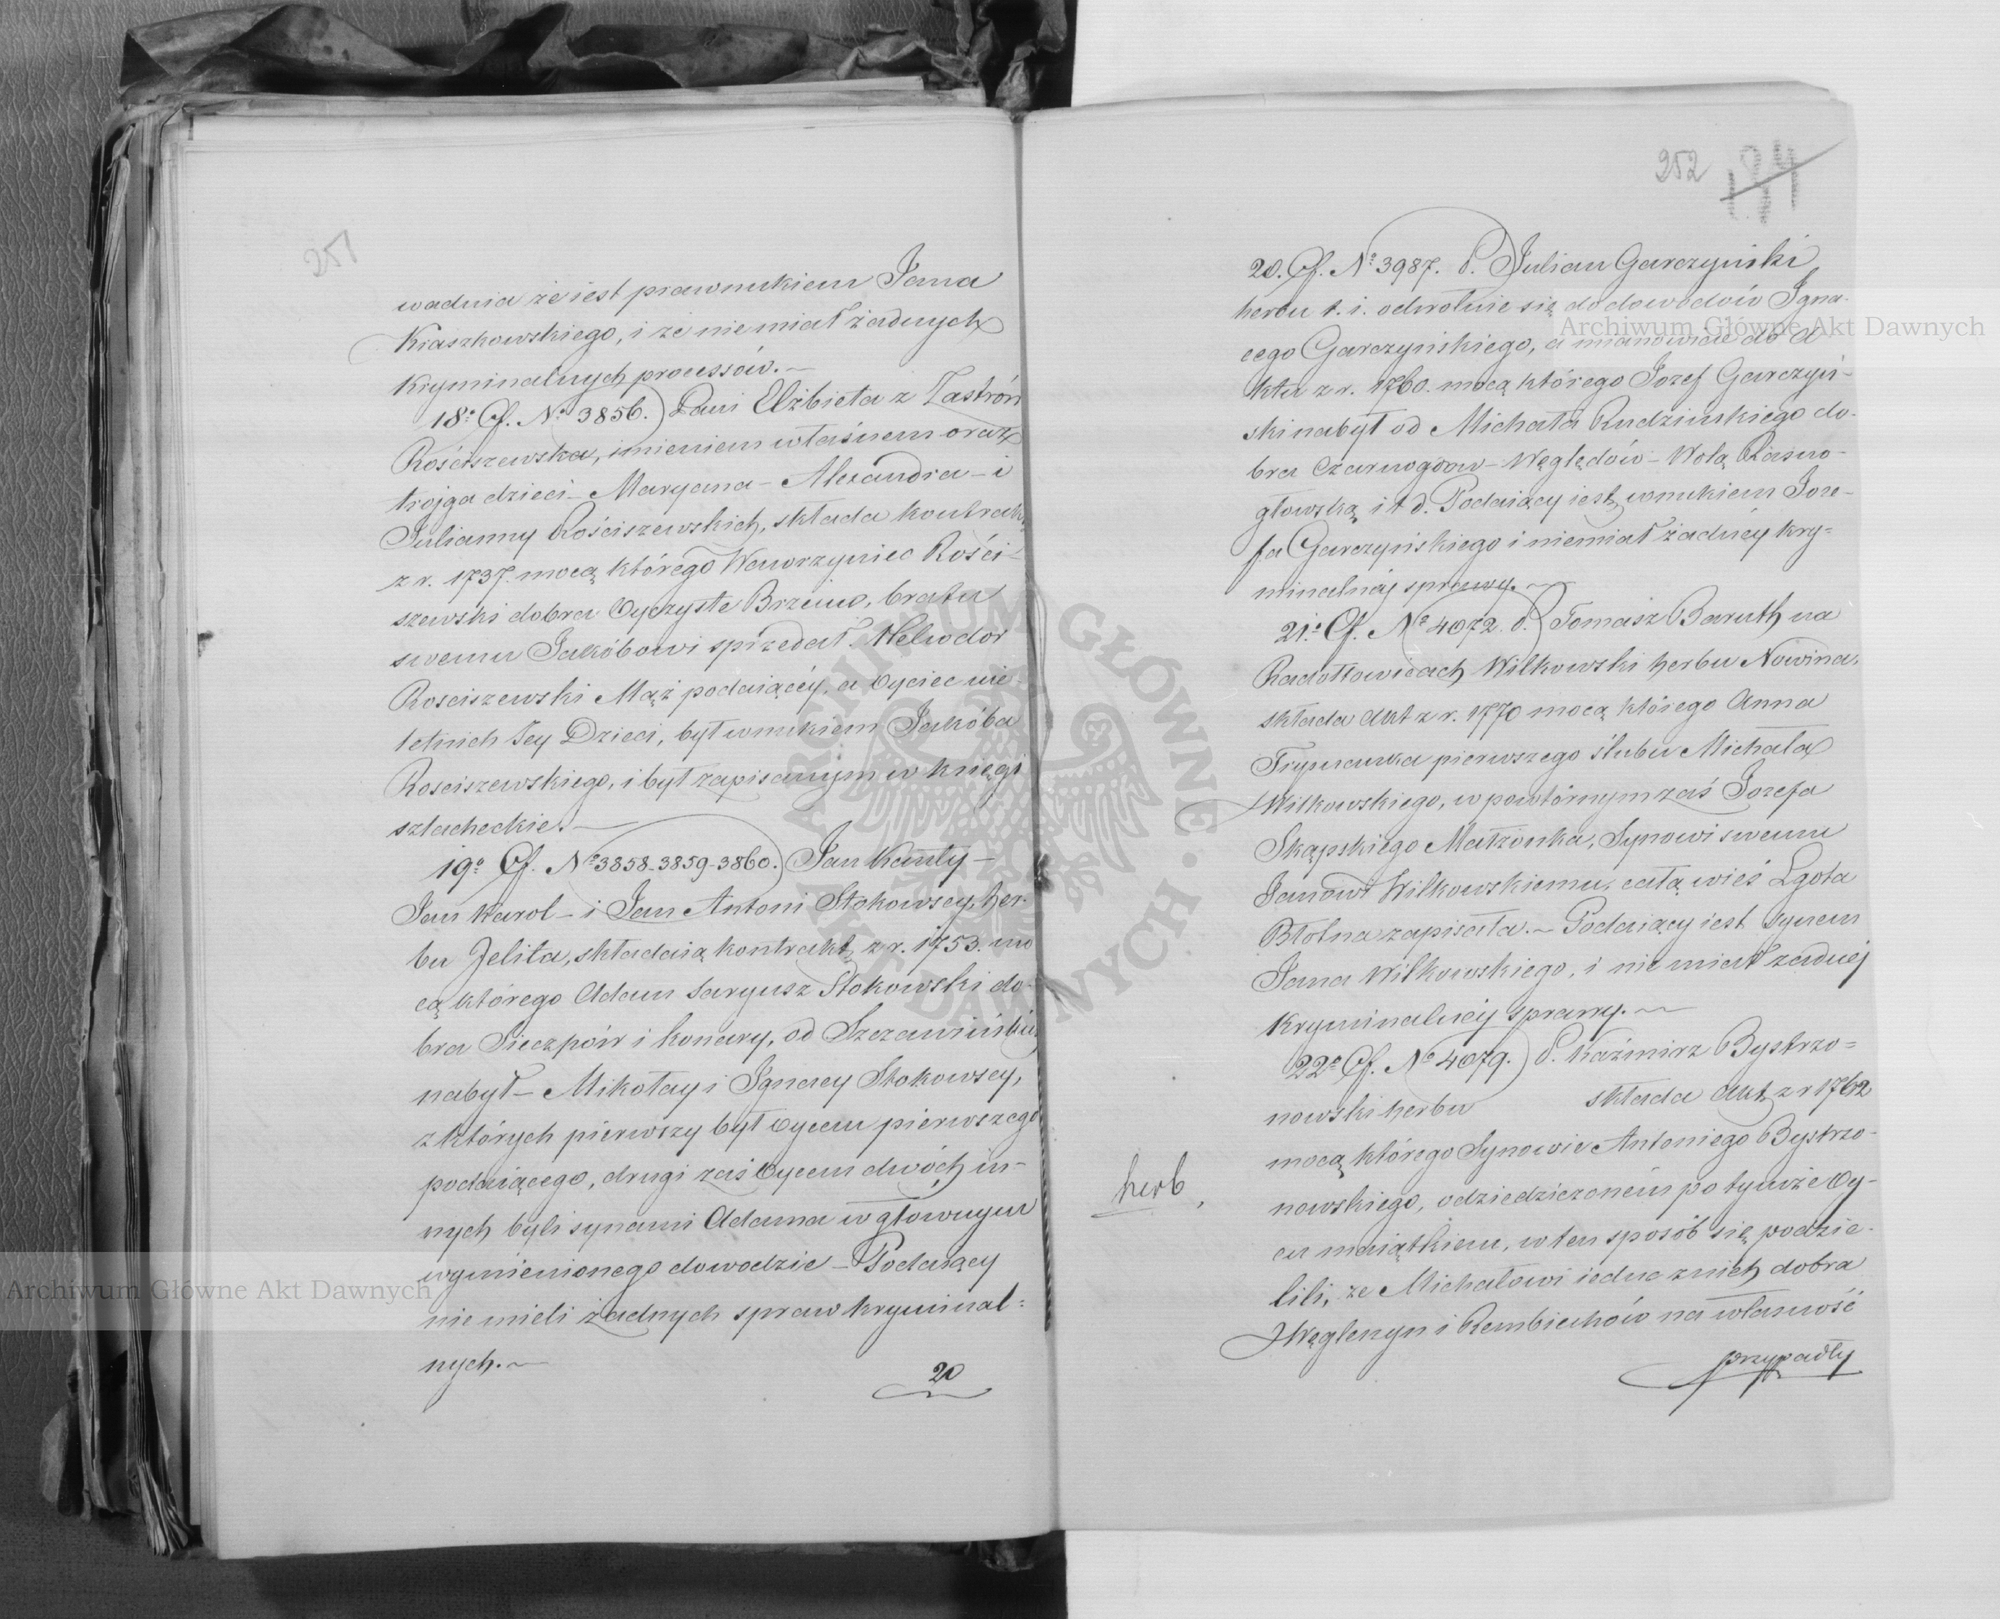 251
wadnia że iest prawnukiem Jana
Kraszkowskiego, i że nie miał żadnych
kryminalnych processów.—
18o Cf. No 3856.) Pani Elżbieta z Zastrón
Rościszewska, imieniem własnem oraz
trojga dzieci – Maryana – Alexandra – i
Julianny Rościszewskich, składa kontrakt
z r. 1737. mocą którego Wawrzyniec Rości-
szewski dobra Oyczyste Brzeino, bratu
swemu Jakóbowi sprzedał. Heliodor
Rosciszewski Mąż podaiącéy, a Oyciec nie-
letnich Jey Dzieci, był wnukiem Jakóba
Rosciszewskiego, i był zapisanym w księgi
szlacheckie.—
19o Cf. No 3858-3859-3860.) Jan Kanty –
Jan Karol – i Jan Antoni Stokowscy, her-
bu Jelita, składaią kontrakt z r. 1753. mo
cą którego Adam Saryusz Stokowski do-
bra Sieczpóir i Konary, od Szczawińskich
nabył – Mikołay i Ignacy Stokowscy,
z których pierwszy był Oycem pierwszego
podaiącego, drugi zaś Oycem dwóch in-
nych byli synami Adama w głownym
wymienionego dowodzie – Podaiący
nie mieli żadnych spraw kryminal=
nych.—
20
252
20. Cf. No 3987. P.) Julian Garczyński
herbu t. i. odwołuie się do dowodów Igna-
cego Garczyńskiego, a mianowicie do A
ktu z r. 1760. mocą którego Jozef Garczyń-
ski nabył od Michała Rudzińskiego do-
bra Czarnogłow – Węględów – Wolą Rasno-
głowską i t d. Podaiący iest wnukiem Joze-
fa Garczyńskiego i niemiał żadnéy kry=
minalnéj sprawy.—
21o Cf. No 4072. P.) Tomasz Baruth na
Radołtowicach Wilkowski herbu Nowina,
składa Akt z r. 1770 mocą którego Anna
Trypnanka pierwszego ślubu Michała
Wilkowskiego, w powtórnym zaś Jozefa
Skąpskiego Małżonka, Synowi swemu
Janowi Wilkowskiemu, całą wieś Lgota
Błotna zapisała.— Podaiący iest Synem
Jana Wilkowskiego, i nie miał żadnéj
kryminalnéj sprawy.—
22o Cf. No 4079.) P. Kaźmirz Bystrzo=
nowski herbu składa Akt z r 1762
mocą którego Synowie Antoniego Bystrzo-
nowskiego, odziedziczonem po tymże Oy-
cu maiątkiem, w ten sposób się podzie-
lili, ze Michałowi iedne znich dobra
Węglenyn i Rembiechów na własność
przypadły
herb,
ARCHIWUM GŁÓWNE AKT DAWNYCH
Archiwum Główne Akt Dawnych
Archiwum Główne Akt Dawnych